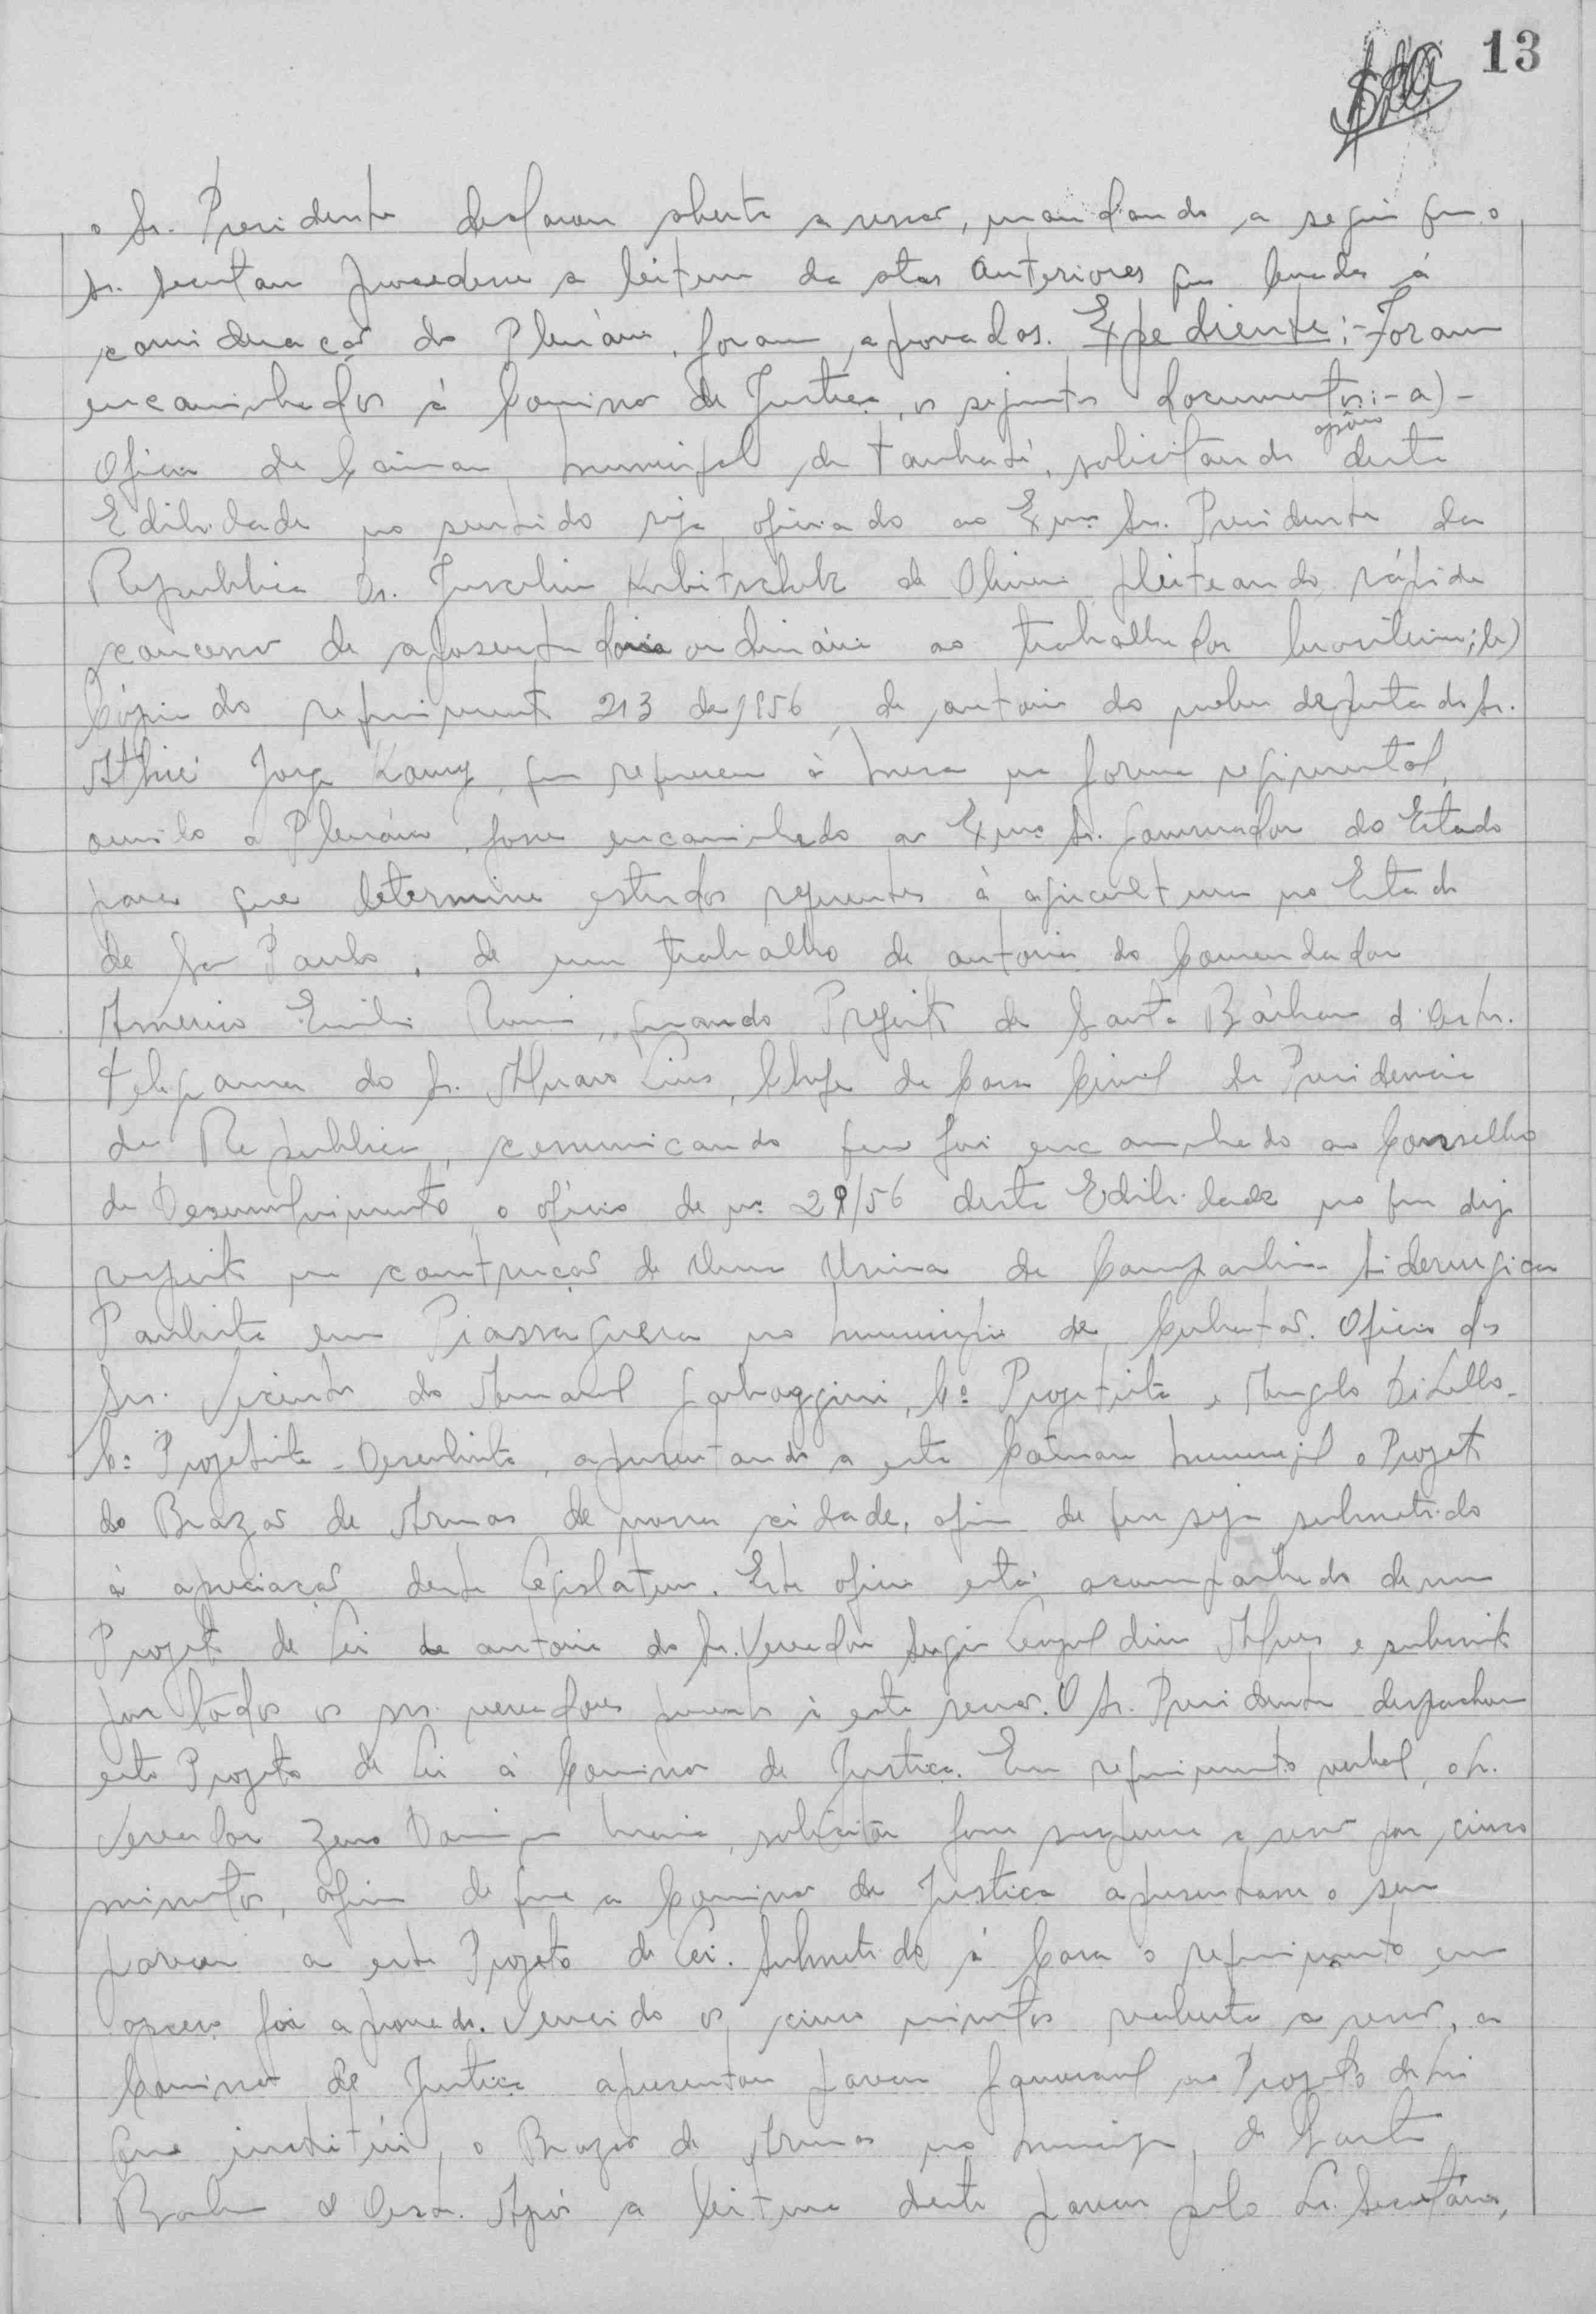 13
o Sr. Presidente declarou aberta a sessão, mandando a seguir que o
Sr. Secretário procedesse a leitura da atas anteriores que levadas à
consideração do Plenário, foram aprovadas. Expediente:- Foram
encaminhados à Comissão de Justiça, os seguintes documentos:- a)-
apôio
Oficio da Câmara Municipal de Taubaté, solicitando desta
Edilidade no sentido seja oficiado ao Exmo Sr. Presidente da
Republica Dr. Juscelino Kubitschek de Oliveira pleiteando rápida
concessão de aposentadoria ordinária ao trabalhador brasileiro; b)
Cópia do requerimento 213 de 1956, de autoria do nobre deputado Sr.
Athié Jorge Koury, que requereu à mesa na forma regimental,
ouvido o Plenário, fosse encaminhado ao Exmo Sr. Governador do Estado
para que determine estudos referentes à agricultura no Estado
de São Paulo, de um trabalho de autoria do Comendador
Americo Emilio Romi, quando Prefeito de Santa Bárbara d'Oeste.
Telegrama do Sr. Alvaro Lins, Chefe da Casa Civil da Presidencia
da República, comunicando que foi encaminhado ao Conselho
de Desenvolvimento, o ofício de nº 29/56 desta Edilidade no que diz
respeito na construção de Uma Usina da Companhia Siderurgica
Paulista em Piassaguera no município de Cubatão. Oficio dos
Srs. Vicente do Amaral Garboggini, Cº Projetista e Angelo Di Lello-
Cº Projetista-Desenhista, apresentando a esta Câmara Municipal o Projeto
do Brazão de Armas de nossa cidade, afim de que seja submetido
à apreciação desta Legislatura. Este oficio está acompanhado de um
Projeto de Lei de autoria do Sr. Vereador Sergio Leopoldino Alves e subscrito
por todos os srs. vereadores presentes à esta sessão. O Sr. Presidente despachou
este Projeto de Lei à Comissão de Justiça. Em requerimento verbal, o Sr.
Vereador Zeno Maia, solicitou fosse suspensa a sessão por cinco
minutos, afim de que a Comissão de Justiça apresentasse o seu
parecer a este Projeto de Lei. Submetido à Casa o requerimento em
apreço foi aprovado. Vencido os cinco minutos reaberta a sessão, a
Comissão de Justiça apresentou parecer favoravel ao Projeto de Lei
que institúi o Brazão de Armas no município de Santa
Barbara d'Oeste. Após a leitura deste parecer pelo Sr. Secretário,